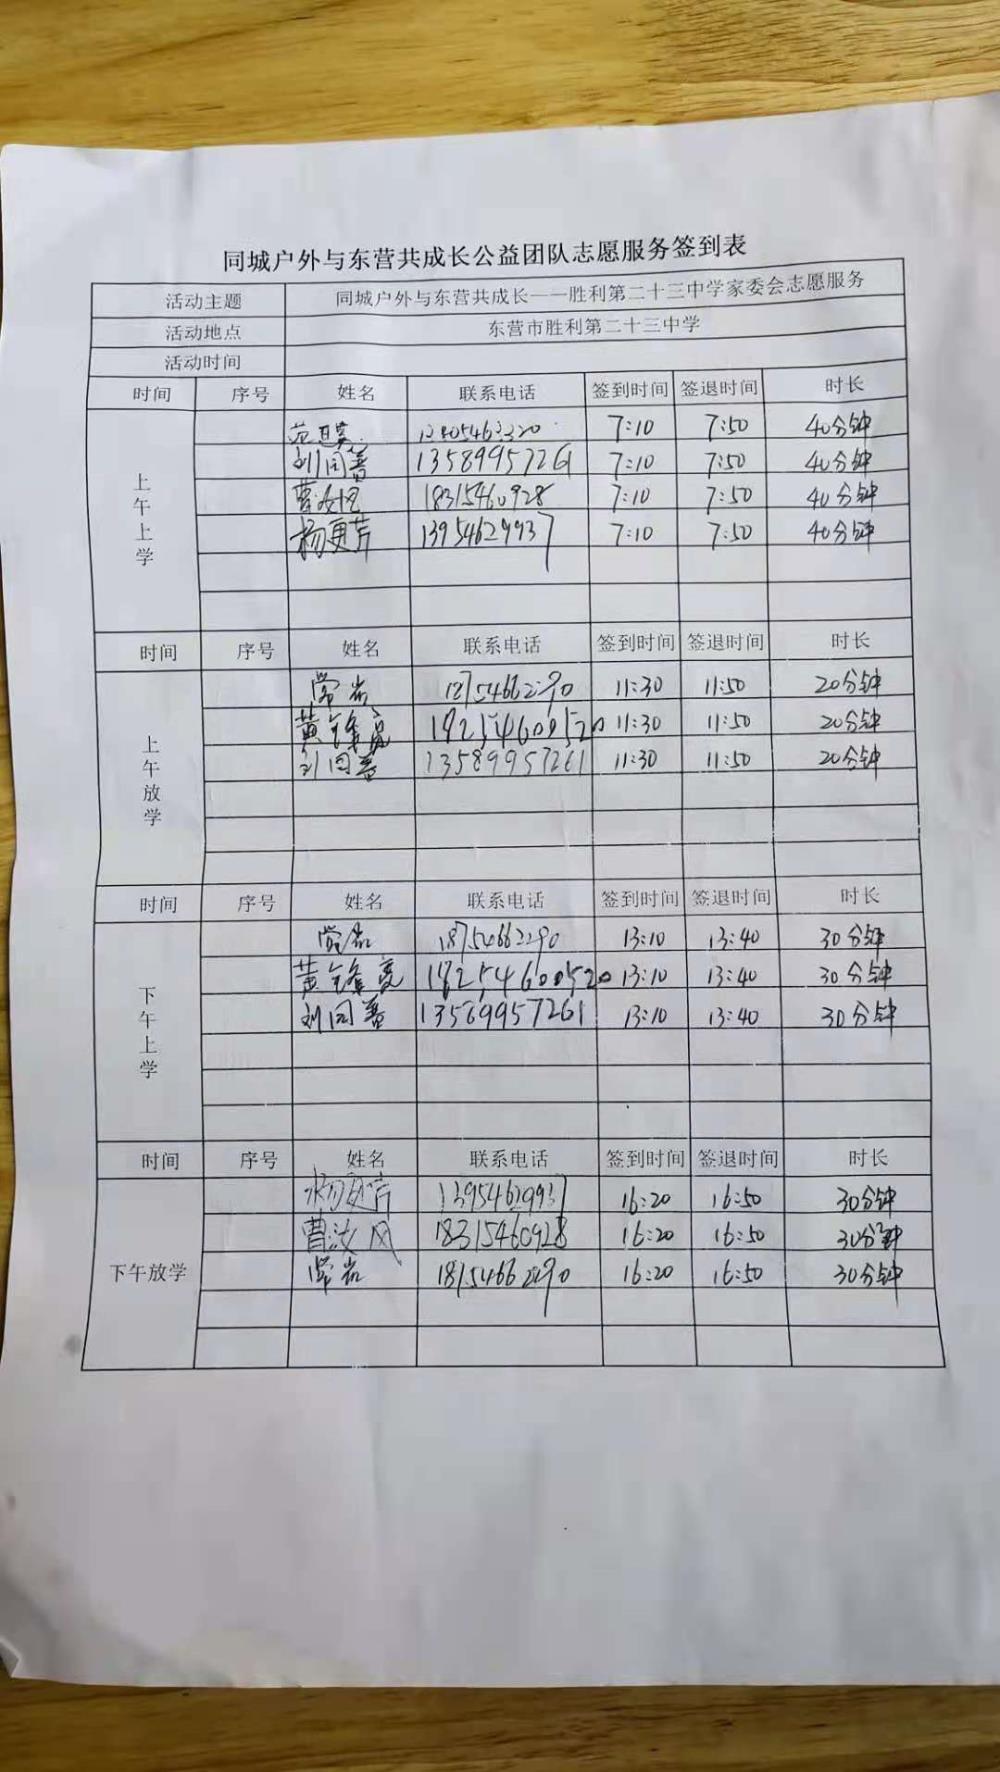 同城户外与东营共成长公益团队志愿服务签到表
活动主题 同城户外与东营共成长——胜利第二十三中学家委会志愿服务
活动地点 东营市胜利第二十三中学
活动时间
时间 序号 姓名 联系电话 签到时间 签退时间 时长
上午上学
7:10 7:50 40分钟
刘同善 13589957261 7:10 7:50 40分钟
18315460928 7:10 7:50 40分钟
杨更芹 13954629937 7:10 7:50 40分钟
时间 序号 姓名 联系电话 签到时间 签退时间 时长
上午放学
常岩 18754662290 11:30 11:50 20分钟
黄锋亮 18254600520 11:30 11:50 20分钟
刘同善 13589957261 11:30 11:50 20分钟
时间 序号 姓名 联系电话 签到时间 签退时间 时长
下午上学
常岩 18754662290 13:10 13:40 30分钟
黄锋亮 18254600520 13:10 13:40 30分钟
刘同善 13589957261 13:10 13:40 30分钟
时间 序号 姓名 联系电话 签到时间 签退时间 时长
下午放学
杨更芹 13954629937 16:20 16:50 30分钟
曹汝风 18315460928 16:20 16:50 30分钟
常岩 18754662290 16:20 16:50 30分钟